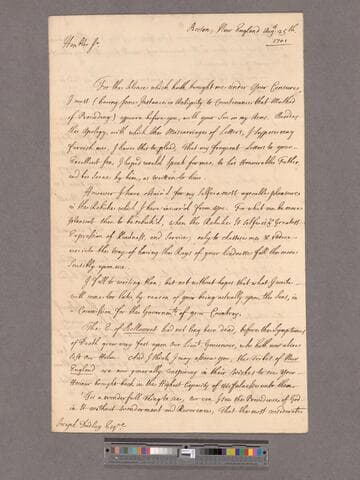 Boston, New England Augt 25th.
1701
Honble Sr
For the Silence which hath brought me under your Censure,
I must (having some Instance in Antiquity to Countenance that Method
of Proceeding) appear before you, with your Son in my Arms. Besides
the Apology, with which the Miscarriages of Letters, I suppose may
furnish me, I have this to plead, That my frequent Letters to your
Excellent Son, I hoped would speak for me, to his Honourable Father,
and be
by him, as written to him.
However I have obtain'd for my self a most agreeable pleasure
in the Rebuke which I have incurr'd from you. For what can be more
pleasant than to be rebuked, when the Rebuke it self is ye Greatest
Expression of Kindness, and Serves, only to chastise me & reduce
me into the Way of having the Rays of your kindness fall the more
Sensibly upon me.
I fall to writing then; but not without hopes that what I write
will come too late, by reason of your being actually, upon the Seas, in
Commission for the Governmt. of your Countrey.
The E. of Bellomont had not long been dead, before the Symptoms
of Death grew very fast upon our Lieut Governour, who hath now alone
left our Helm. And I think I may assure you, the Visibles of New
England are now generally conspiring in their Wishes to see your
Honour brought back in the Highest Capacity of
unto them.
Tis a wonderfull Thing to see, nor can I see the Providence of God
in it without wonderment and Reverence, That the most considerate
Joseph Dudley Esqre.